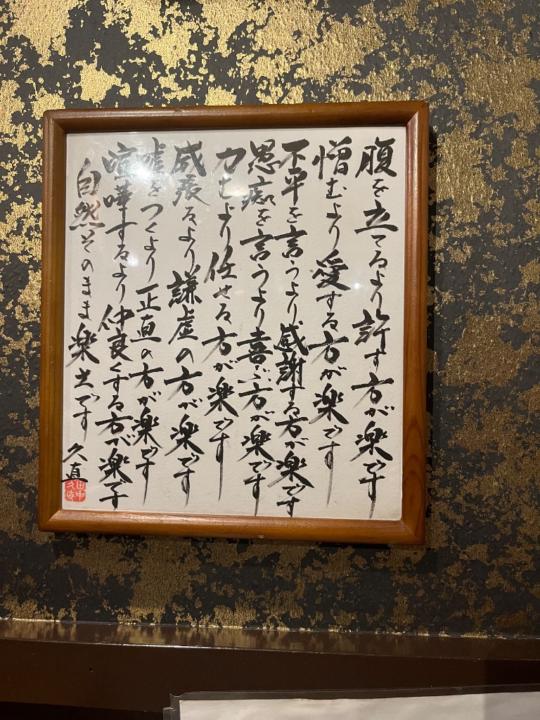 腹を立てるより許す方が楽です
憎むより愛する方が楽です
不平を言うより感謝する方が楽です
愚痴を言うより喜ぶ方が楽です
力むより任せる方が楽です
威張るより謙虚の方が楽です
嘘をつくより正直の方が楽です
喧嘩するより仲良くする方が楽です
自然そのまま楽土です
久直
田中
久直